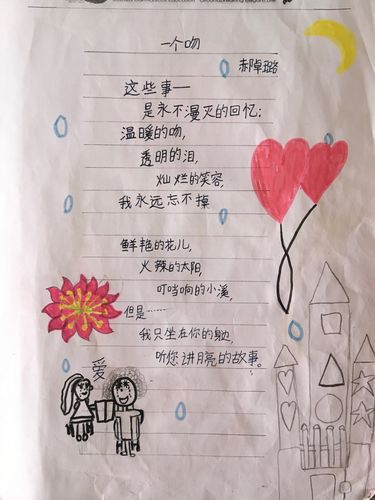 一个吻
赤焯璐
这些事一
是永不漫灭的回忆：
温暖的吻，
透明的泪，
灿烂的笑容，
我永远忘不掉
鲜艳的花儿，
火辣的太阳，
叮当响的小溪，
但是……
我只坐在你的身边，
听您讲月亮的故事。
爱